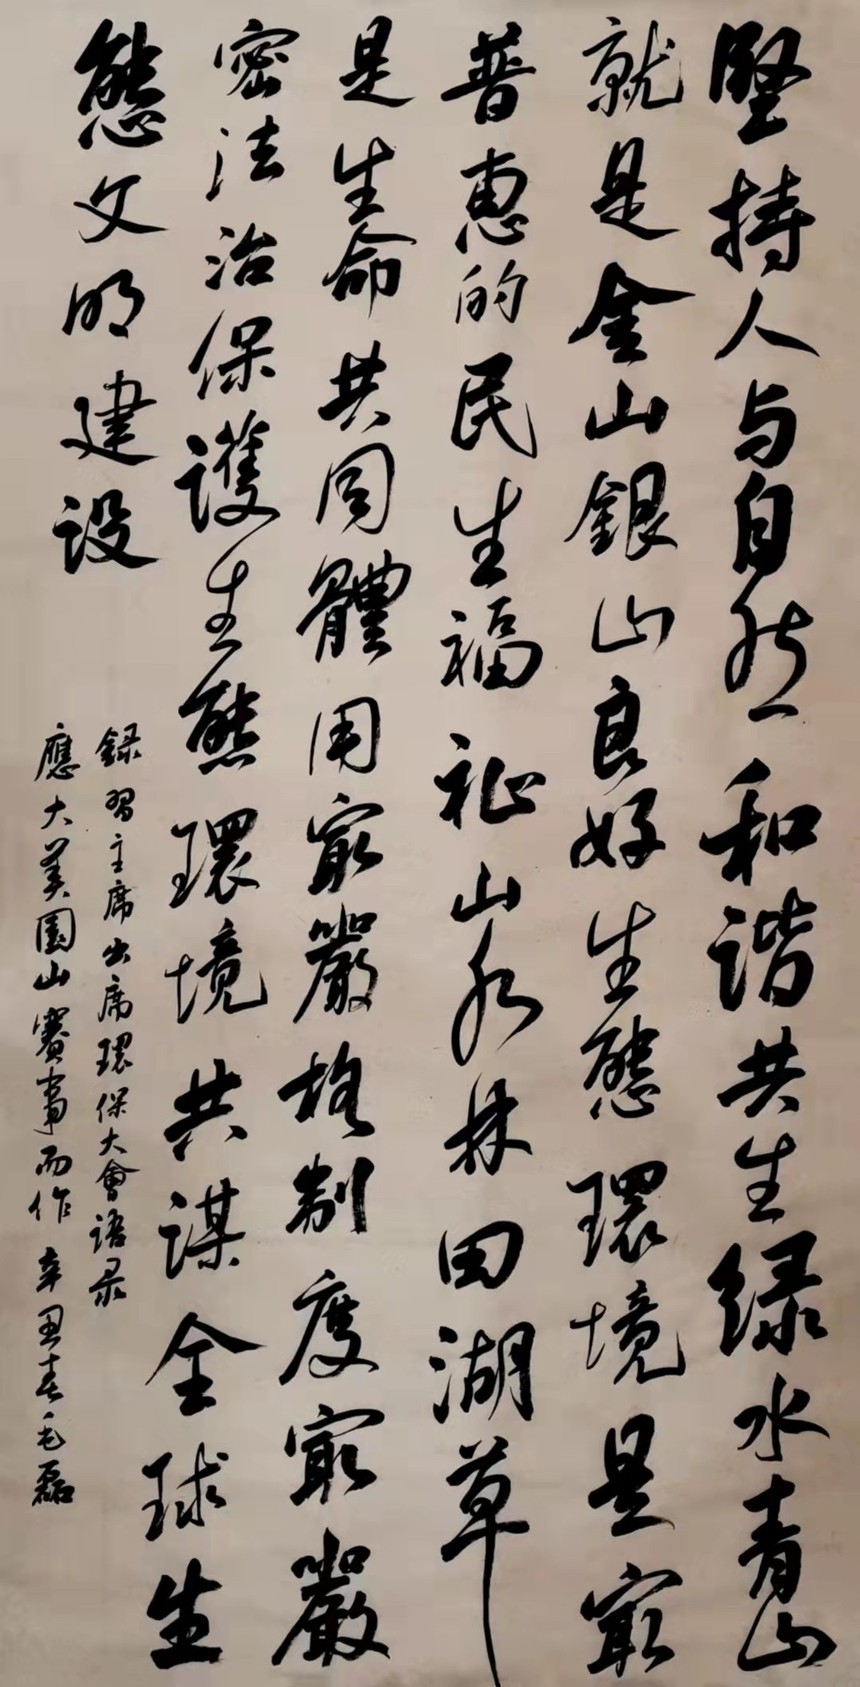 堅持人与自然和谐共生绿水青山
就是金山銀山良好生態環境是㝡
普惠的民生福祉山水林田湖草
是生命共同體用㝡嚴格制度㝡嚴
密法治保護生態環境共謀全球生
態文明建设
録習主席出席環保大會语录
應大美圌山賽事而作辛丑春毛磊